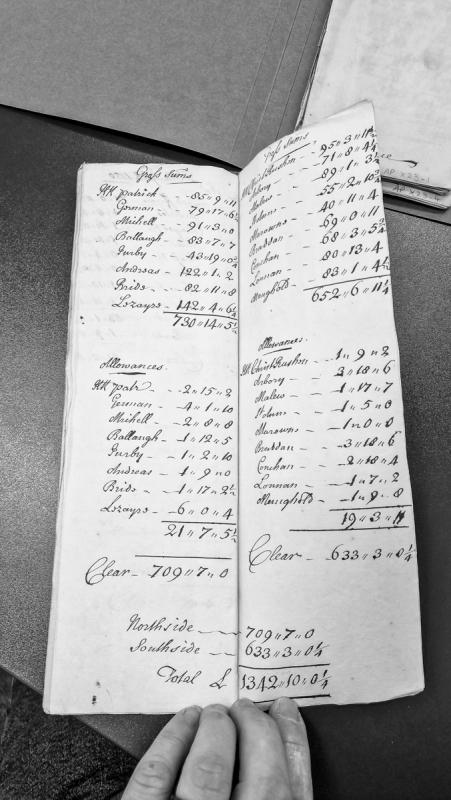 Gross Sums
KK Patrick - 85 " 9 " 11
German - 79 " 17 " 6½
Michell - 91 " 3 " 0
Ballaugh - 83 " 7 " 7
Jurby - 43 " 19 " 0¾
Andreas - 122 " 1 " 2
Bride - 82 " 11 " 8
Lezayre - 142 " 4 " 6¼
730 " 14 " 5½
Allowances.
KK Patr - 2 " 15 " 2
German - 4 " 1 " 10
Michell - 2 " 8 " 8
Ballaugh - 1 " 12 " 5
Jurby - 1 " 2 " 10
Andreas - 1 " 9 " 0
Bride - 1 " 17 " 2½
Lezayre - 6 " 0 " 4
21 " 7 " 5½
Clear - 709 " 7 " 0
Gross Sums
KK Christ Rushn - 95 " 3 " 11½
Arbory - 71 " 8 " 4¼
Malew - 89 " 1 " 3½
Holms - 55 " 2 " 10¾
Marowns - 40 " 11 " 4
Braddan - 69 " 0 " 11
Conchan - 68 " 3 " 5¾
Lonnan - 80 " 13 " 4
Maughold - 83 " 1 " 4½
652 " 6 " 11¼
Allowances.
KK Christ Rushn - 1 " 9 " 2
Arbory - 2 " 18 " 6
Malew - 1 " 17 " 7
Holms - 1 " 5 " 0
Marowns - 1 " 0 " 8
Braddan - 3 " 18 " 6
Conchan - 2 " 18 " 4
Lonnan - 1 " 7 " 2
Maughold - 1 " 9 " 8
19 " 3 " 11
Clear - 633 " 3 " 0¼
Northside - 709 " 7 " 0
Southside - 633 " 3 " 0¼
Total £ 1342 " 10 " 0¼
AP X23-1